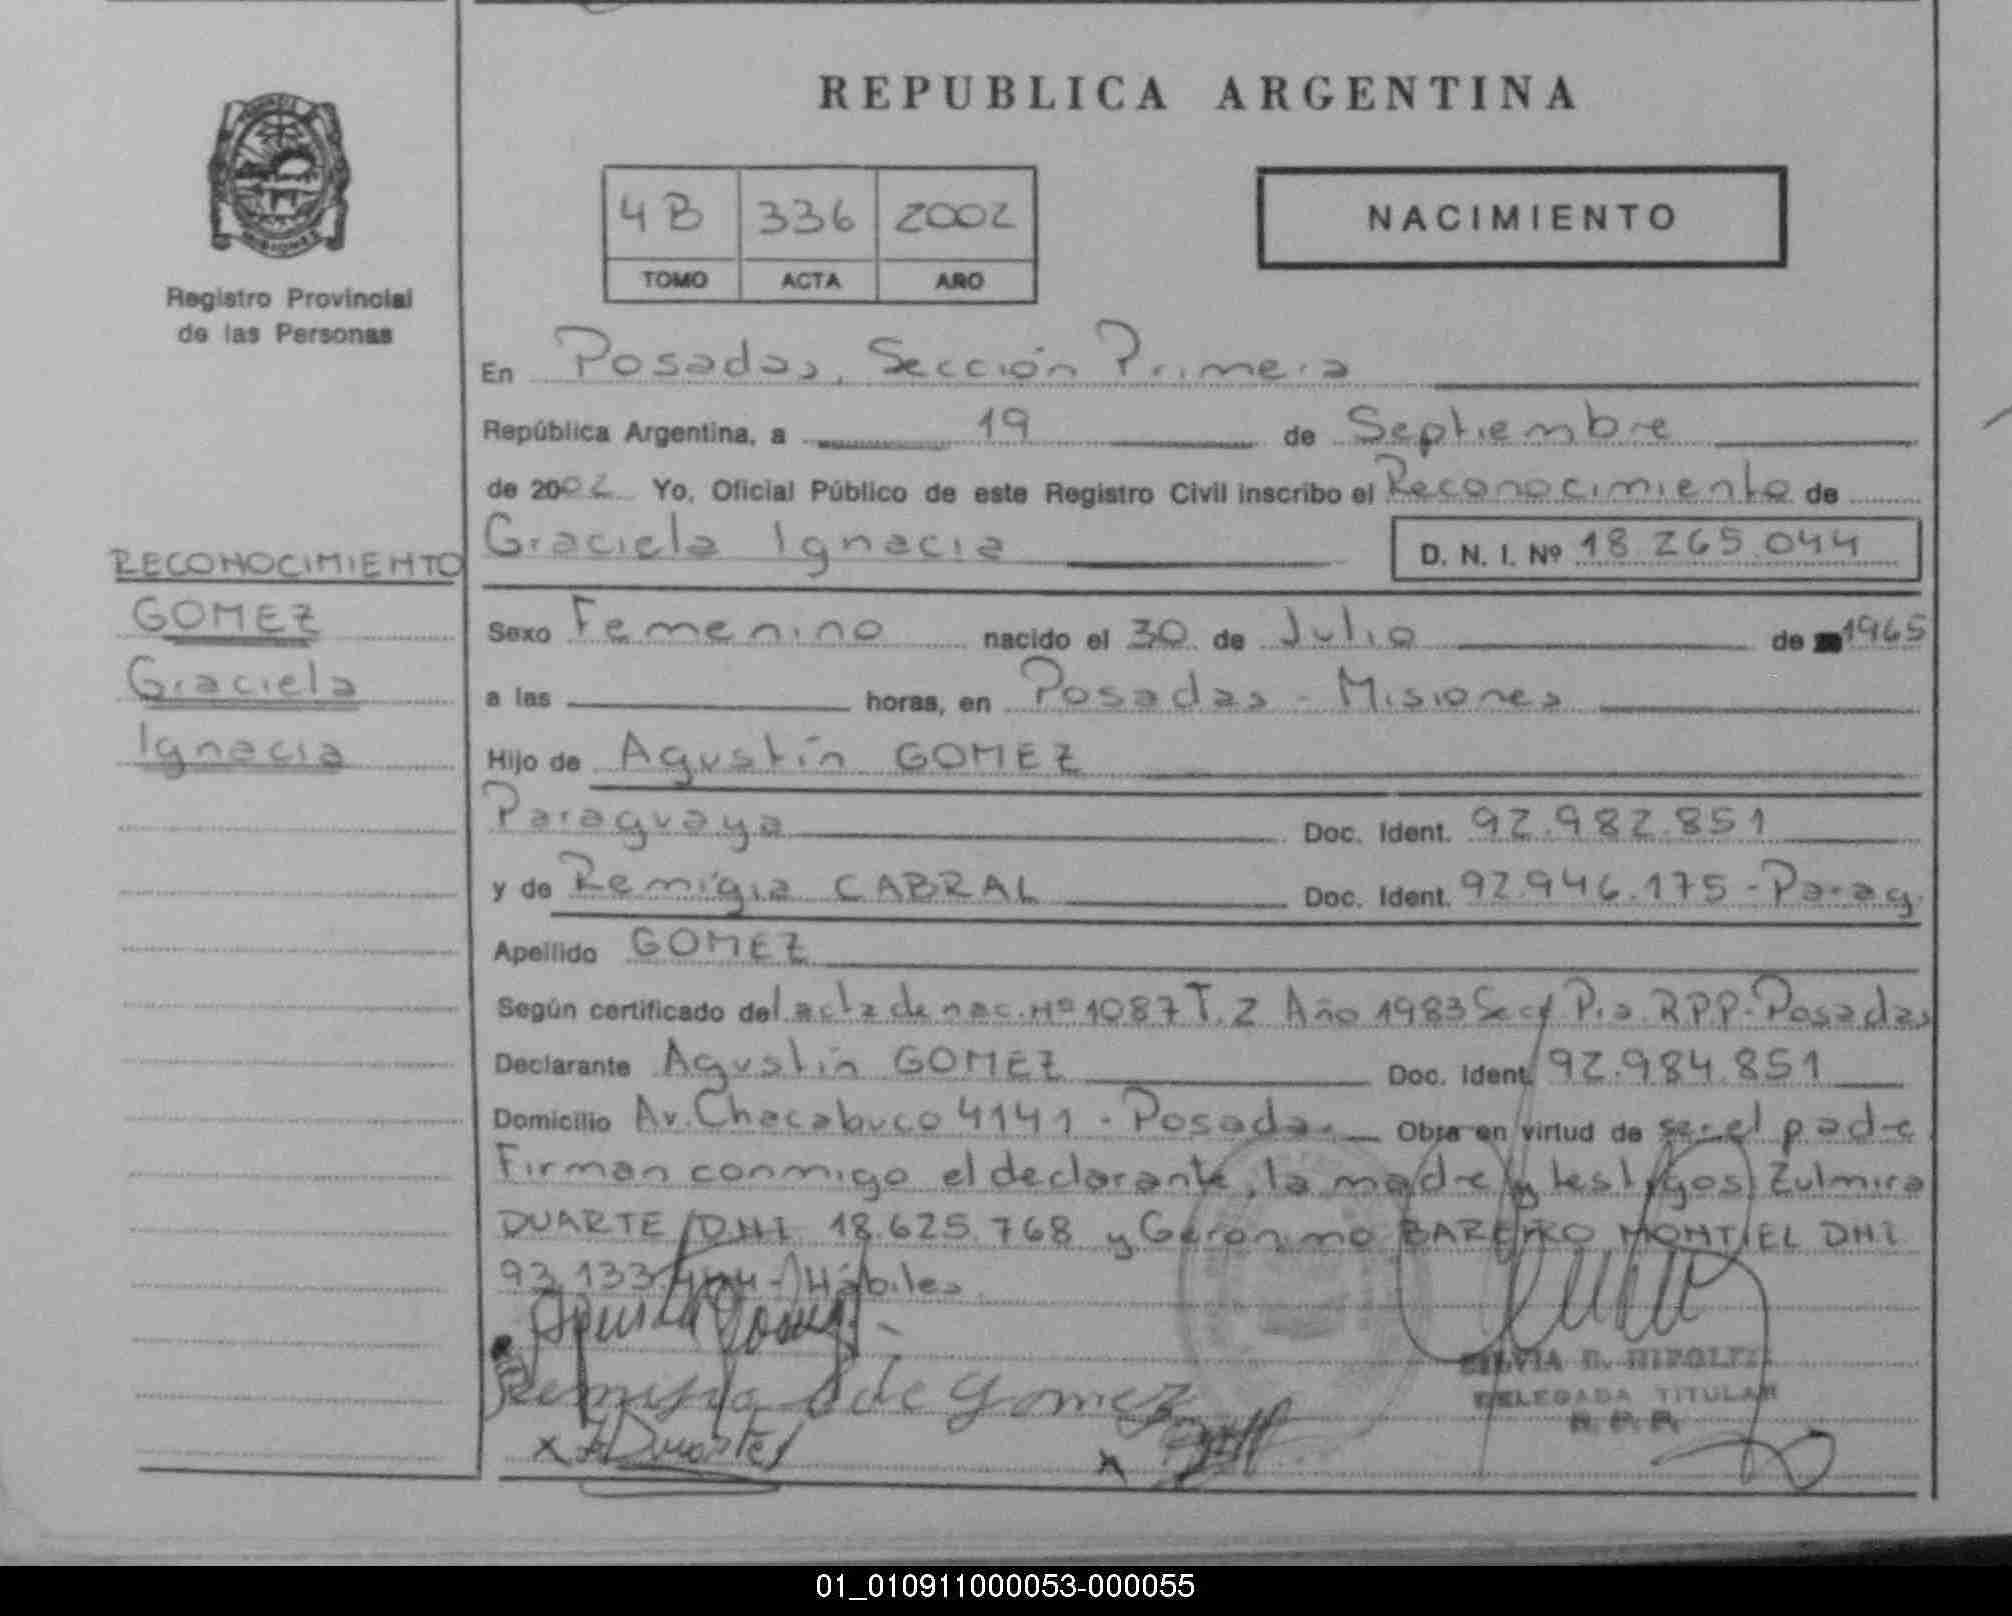 REPUBLICA ARGENTINA
MISIONES
Registro Provincial
de las Personas
4B 336 2002
TOMO ACTA AÑO
NACIMIENTO
En Posadas, Sección Primera
República Argentina, a 19 de Septiembre
de 2002 Yo, Oficial Público de este Registro Civil inscribo el Reconocimiento de
Graciela Ignacia D. N. I. Nº 18.265.044
RECONOCIMIENTO
GOMEZ
Graciela
Ignacia
Sexo Femenino nacido el 30 de Julio de 1965
a las horas, en Posadas - Misiones
Hijo de Agustín GOMEZ
Paraguaya Doc. Ident. 92.982.851
y de Remigia CABRAL Doc. Ident. 92.946.175 - Parag.
Apellido GOMEZ
Según certificado del acta de nac. Nº 1087 T. 2 Año 1983 Secc Pra. RPP. Posadas
Declarante Agustín GOMEZ Doc. Ident. 92.984.851
Domicilio Av. Chacabuco 4141 - Posadas Obra en virtud de ser el padre
Firman conmigo el declarante, la madre y testigos Zulmira
DUARTE DNI 18.625.768 y Gerónimo BAREIRO MONTIEL DNI
93.133. - Hábiles
Agustin Gomez
Remigia de Gomez
Duarte
SILVIA
DELEGADA TITULAR
R. P. P.
01_010911000053-000055